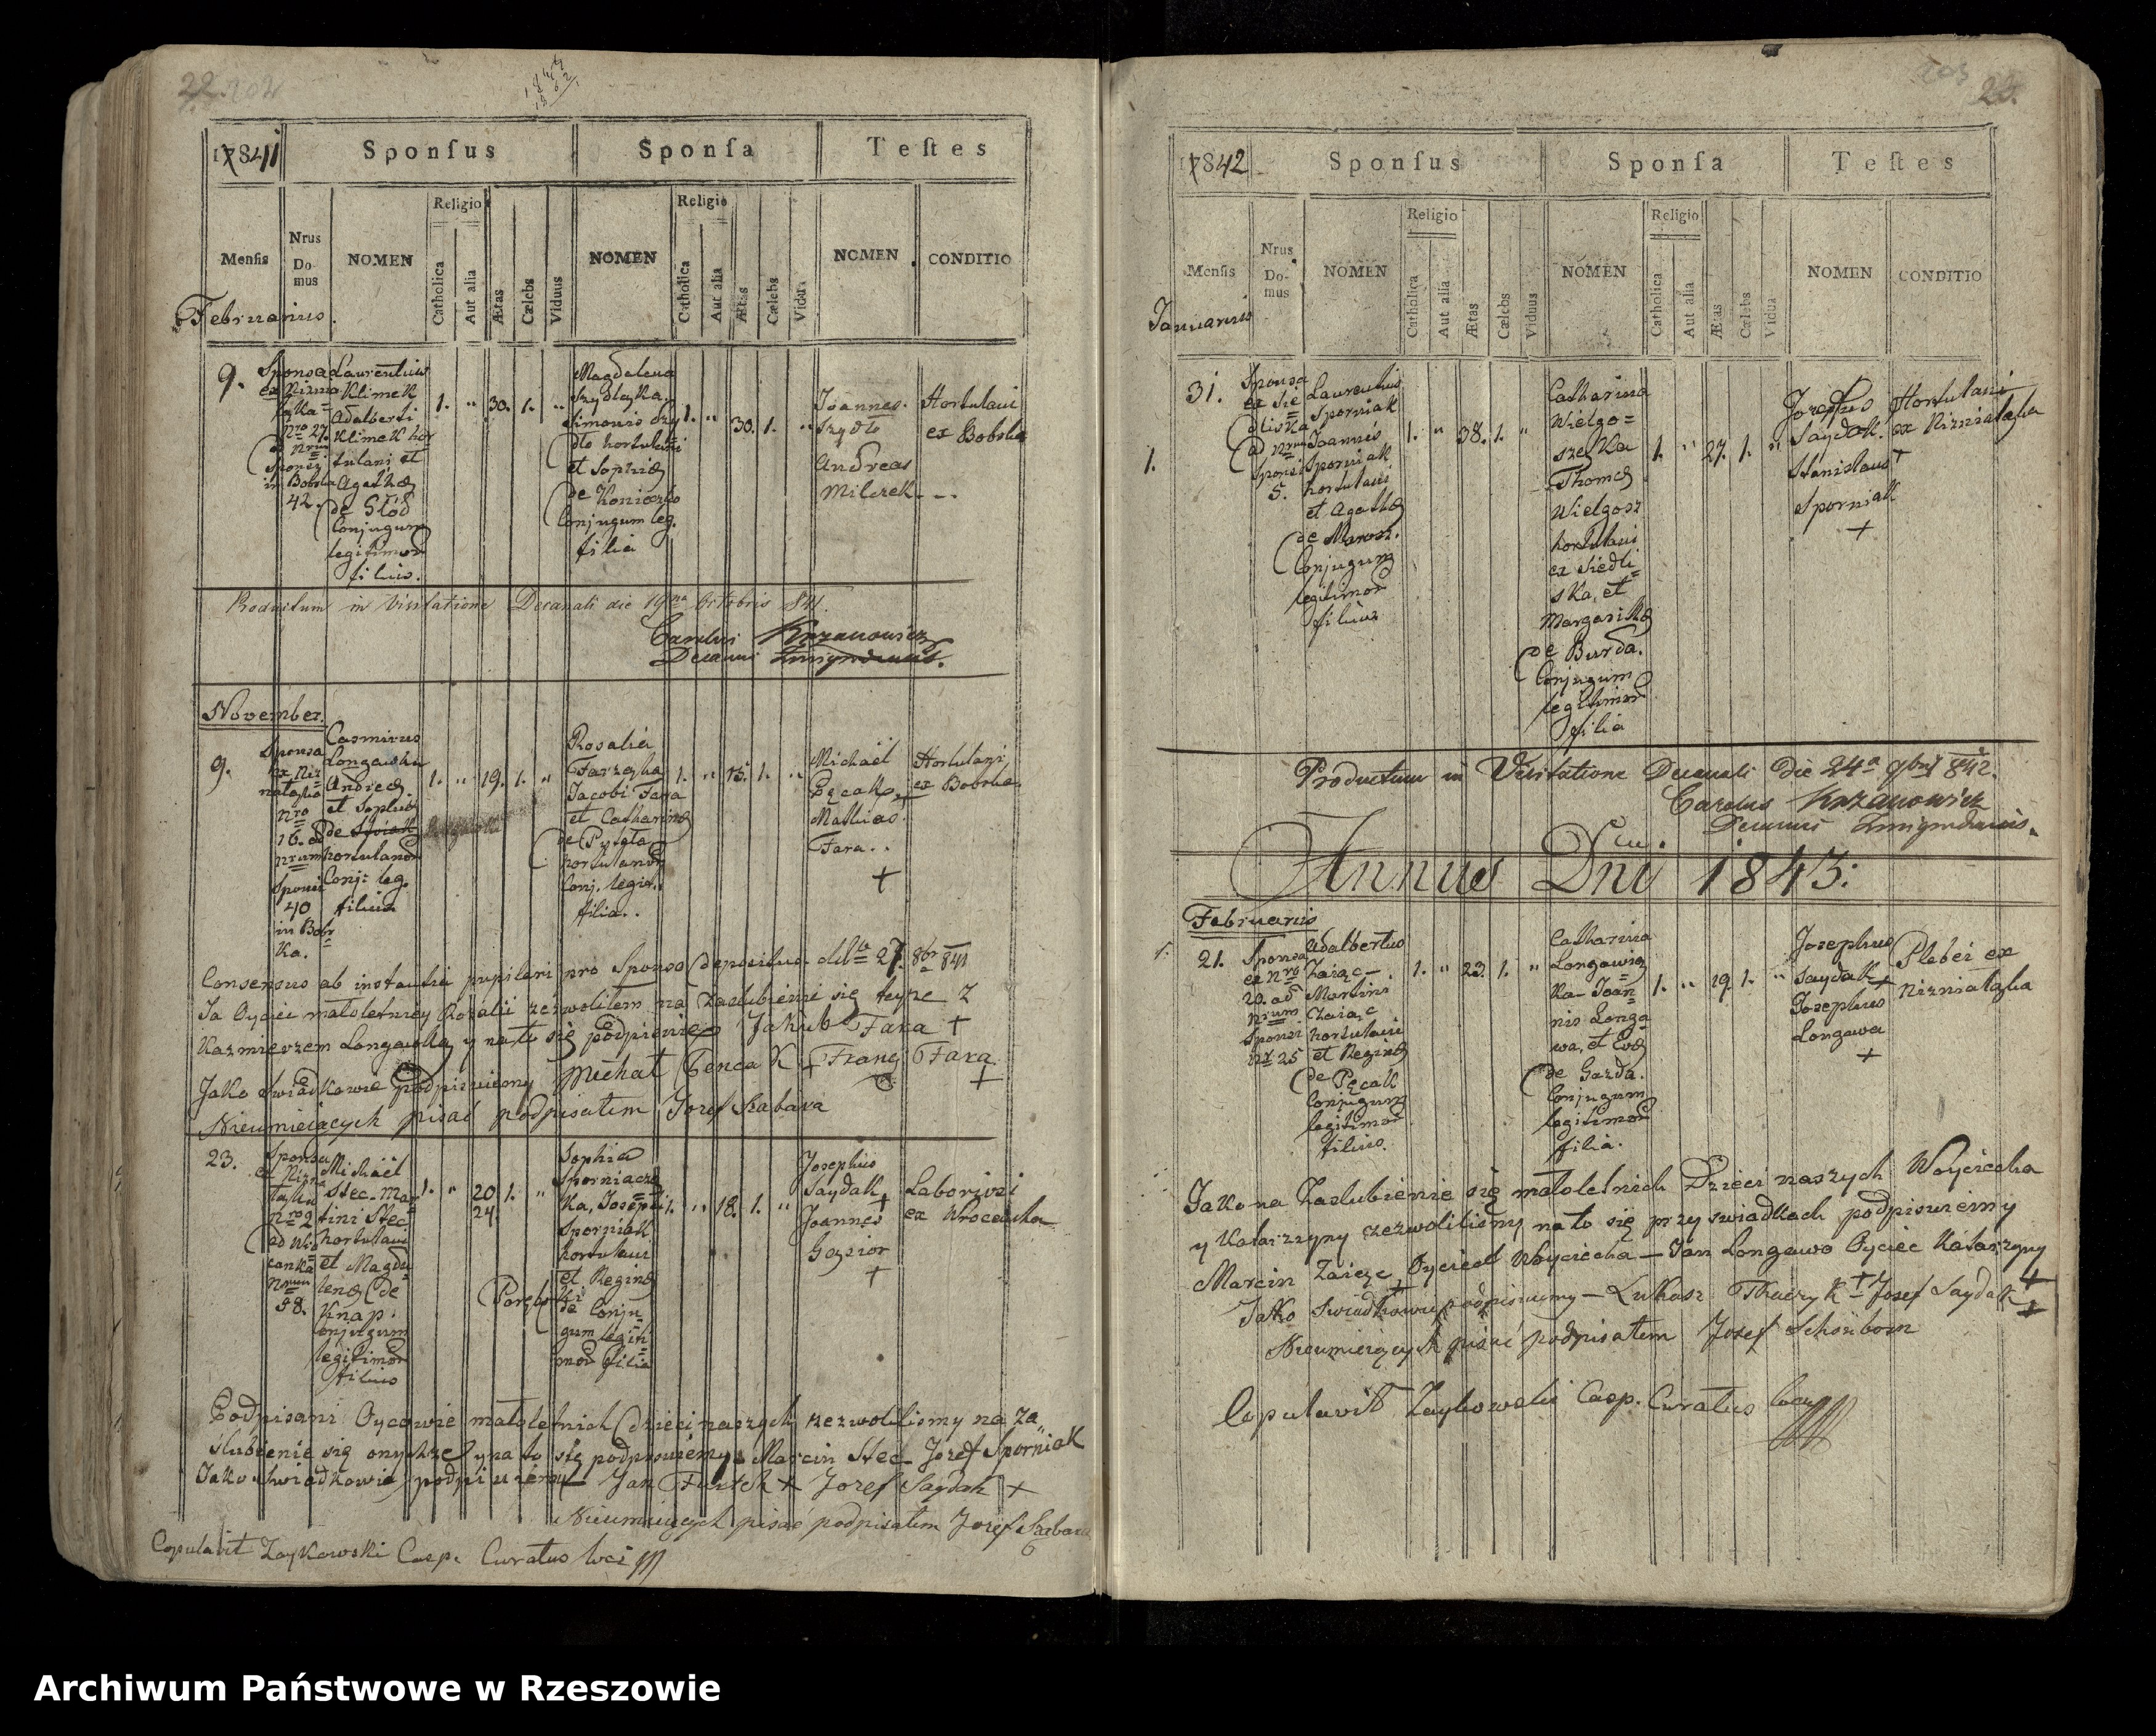 22. 202
1841
Sponſus
Sponſa
Teſtes
Mensis
Nrus
Do-
mus
NOMEN
Religio
Catholica
Aut alia
Ætas
Cælebs
Viduus
NOMEN
Religio
Catholica
Aut alia
Ætas
Cælebs
Vidua
NOMEN
CONDITIO
Februarius.
9.
Sponsa
ex Nizna
łąka
Nro 27.
ad Nrum
Sponsi
in Bobrka
42.
Laurentius
Klimek
Adalberti
Klimek hor
tulani et
Agathæ
(de Głód
Conjugum
legitimor
filius.
1. " 30. 1. "
Magdalena
Szydł
Simonis Szy
dło hortulani
et Sophiæ
(de Konieczko
Conjugum leg.
filia
1. " 30. 1. "
Joannes
Szydło
Andreas
Milczek. - -
Hortulani
ex Bobrka
Productum in Visitatione Decanali die 19na Octobris 841.
Carolus Krzanowicz
Decanus Zmigrodensis.
November.
9.
Sponsa
ex Niz
nałąka
Nro
16. ad
Nrum
Sponsi
40
in Bobr
ka.
Casimirus
Longawka
Andreæ
et Sophiæ
de
hortulanor
Conj: leg.
filius
1. " 19. 1. "
Rosalia
Jacobi Fara
et Catharinæ
(de Pytla
hortulanor
Conj. legit.
filia..
1. " 15. 1. "
Michaël
Pęcak +
Mathias
Fara..
+
Hortulani
ex Bobrka
Consensus ab instantia pupilari pro Sponso depositus dtto 27. 8br 841
Ja Oyciec małoletniey Rozalii zezwoliłem na zaslubienie się teyze z
Kazmierzem Longawką y na to się podpisuię Jakub Fara +
Jako swiadkowie podpisuiemy Michał + Franc Fara
+
Nieumieiących pisać podpisałem Jozef Szabara
23.
Sponsa
ex Nizna
łąka
Nro 2
ad Wro
canka
Nrum
58.
Michaël
Stec - Mar
tini Stec
hortulani
et Magda
lenæ (de
Knap.
Conjugum
legitimor
filius
1. " 20 1. "
24.
Sophia
Sporniacz
ka, Josephi
Sporniak
hortulani
et Reginæ
(Poręb
de Conju
gum legiti
mor filia
1. " 18. 1. "
Josephus
Saydak +
Joannes
Gąsior
+
Laborizi
ex Wrocanka
Podpisani Oycowie małoletnich dzieci naszych zezwolilismy na za
slubienie się onychze y na to się podpisuiemy Marcin Stec - Jozef Sporniak
Jako swiadkowie podpisuiemy - Jan + Jozef Saydak +
Nieumieiących pisać podpisałem Jozef Szabara
Copulavit Zaykowski Casp. Curatus loci
203 23.
1842
Sponſus
Sponſa
Teſtes
Mensis
Nrus
Do-
mus
NOMEN
Religio
Catholica
Aut alia
Ætas
Cælebs
Viduus
NOMEN
Religio
Catholica
Aut alia
Ætas
Cælebs
Vidua
NOMEN
CONDITIO
Januarius
1.
31.
Sponsa
ex Sie
dliska
ad Nrum
Sponsi
5.
Laurentius
Sporniak
Joannis
Sporniak
hortulani
et Agathæ
(de Marosz.
Conjugum
legitimor
filius
1. " 38. 1. "
Catharina
Wielgo=
szezka
Thomæ
Wielgosz
hortulani
ex Siedli=
ska, et
Margarithæ
(de Burda.
Conjugum
legitimor
filia
1. " 27. 1. "
Josephus
Saydak. +
Stanislaus
Sporniak
+
Hortulani
ex Niznialąka
Productum in Visitatione Decanali die 24a 9bris 842.
Carolus Krzanowicz
Decanus Zmigrodensis.
Annus Dni 1843:
Februarius
1.
21.
Sponsa
ex Nro
20. ad
Nrum
Sponsi
Nr 25
Adalbertus
Zaiąc -
Martini
Zaiąc
hortulani
et Reginæ
(de Pęcak
Conjugum
legitimor
filius.
1. " 23. 1. "
Catharina
Longawcz
ka - Joan
nis Longa
wa, et Evæ
(de Gazda.
Conjugum
legitimor
filia.
1. " 19. 1. "
Josephus
Saydak +
Josephus
Longawa
+
Plebei ex
Niznialąka
Jako na Zaslubienie się małoletnich Dzieci naszych Woyciecha
y Katarzyny zezwolilismy na to się przy swiadkach podpisuiemy
Marcin Zaiąc Oyciec Woyciecha - Jan Longawa Oyciec Katarzyny
Jako swiadkowie podpisuiemy - Łukasz + Jozef Saydak +
Nieumieiących pisać podpisałem Jozef Schönborn
Copulavit Zaykowski Casp. Curatus loci
Archiwum Państwowe w Rzeszowie